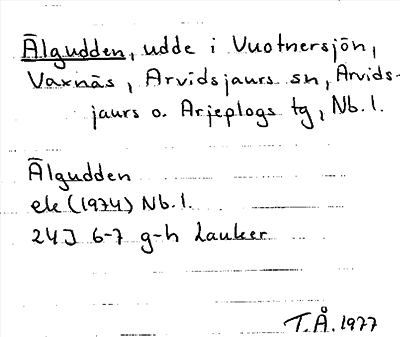 Älgudden, udde i Vuotnersjön,
Vaxnäs, Arvidsjaurs sn, Arvids-
jaurs o. Arjeplogs tg, Nb. l.
Älgudden
ek (1974) Nb. l.
24J 6-7 g-h Lauker
T.Å. 1977